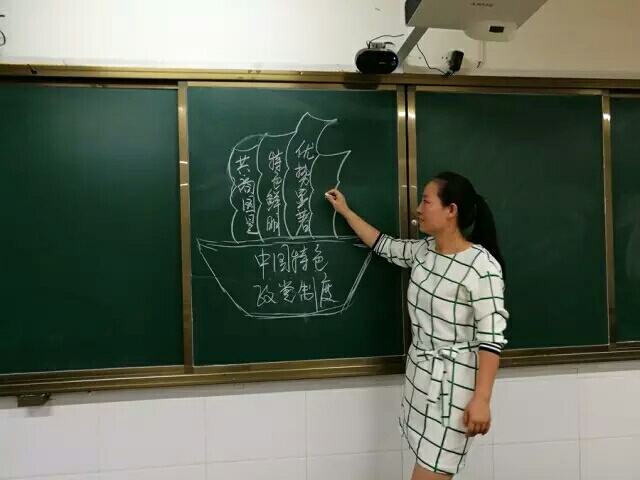 共商国是
特色鲜明
优势显著
中国特色
政党制度